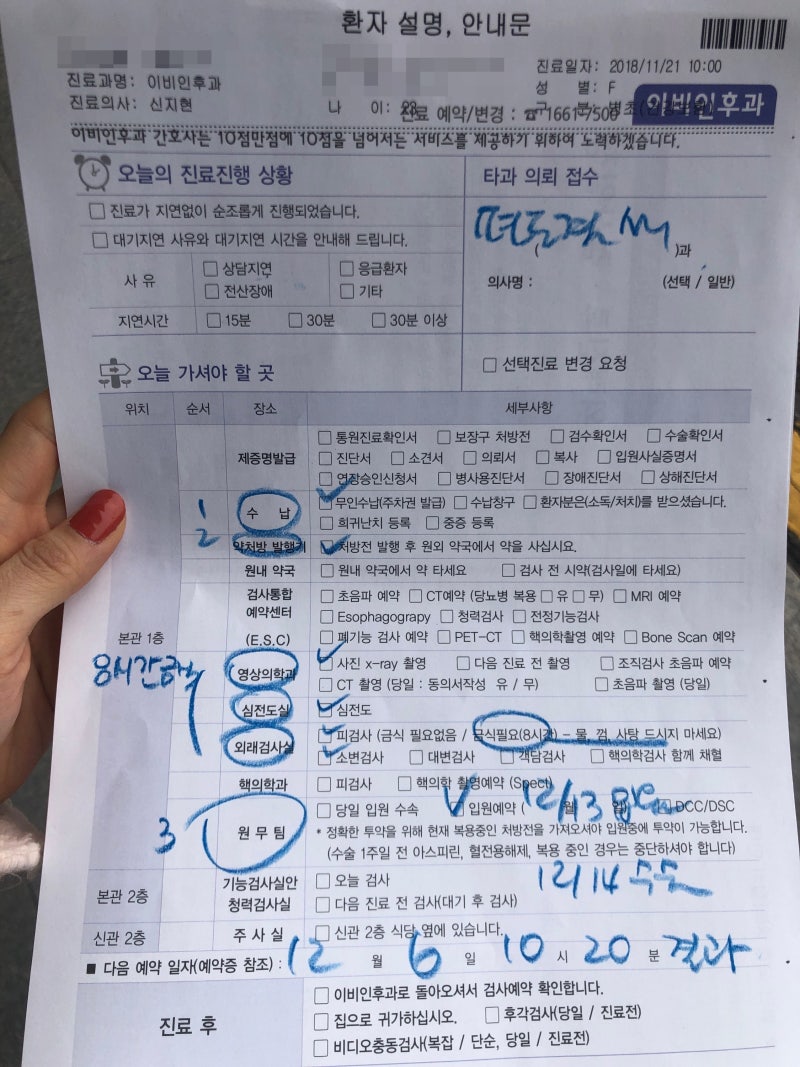 환자 설명, 안내문
진료일자: 2018/11/21 10:00
진료과명: 이비인후과
성 별: F
진료의사: 신지현
나 이:
진료 예약/변경 : ☎1661-7500
이비인후과
이비인후과 간호사는 10점만점에 10점을 넘어서는 서비스를 제공하기 위하여 노력하겠습니다.
오늘의 진료진행 상황
타과 의뢰 접수
☐ 진료가 지연없이 순조롭게 진행되었습니다.
( )과
☐ 대기지연 사유와 대기지연 시간을 안내해 드립니다.
의사명 : (선택 / 일반)
사 유 ☐ 상담지연 ☐ 응급환자
☐ 전산장애 ☐ 기타
지연시간 ☐ 15분 ☐ 30분 ☐ 30분 이상
☐ 선택진료 변경 요청
오늘 가셔야 할 곳
위치 순서 장소 세부사항
제증명발급 ☐ 통원진료확인서 ☐ 보장구 처방전 ☐ 검수확인서 ☐ 수술확인서
☐ 진단서 ☐ 소견서 ☐ 의뢰서 ☐ 복사 ☐ 입원사실증명서
☐ 연장승인신청서 ☐ 병사용진단서 ☐ 장애진단서 ☐ 상해진단서
1 수 납 ☑ 무인수납(주차권 발급) ☐ 수납창구 ☐ 환자분은(소독/처치)를 받으셨습니다.
☐ 희귀난치 등록 ☐ 중증 등록
2 약처방 발행기 ☑ 처방전 발행 후 원외 약국에서 약을 사십시요.
원내 약국 ☐ 원내 약국에서 약 타세요 ☐ 검사 전 시약(검사일에 타세요)
검사통합 예약센터 (E.S.C) ☐ 초음파 예약 ☐ CT예약 (당뇨병 복용 ☐ 유 ☐ 무) ☐ MRI 예약
☐ Esophagograpy ☐ 청력검사 ☐ 전정기능검사
☐ 폐기능 검사 예약 ☐ PET-CT ☐ 핵의학촬영 예약 ☐ Bone Scan 예약
본관 1층
8시간금식
영상의학과 ☑ 사진 x-ray 촬영 ☐ 다음 진료 전 촬영 ☐ 조직검사 초음파 예약
☐ CT 촬영 (당일 : 동의서작성 유 / 무) ☐ 초음파 촬영 (당일)
심전도실 ☑ 심전도
외래검사실 ☑ 피검사 (금식 필요없음 / 금식필요(8시간) - 물, 껌, 사탕 드시지 마세요)
☑ 소변검사 ☐ 대변검사 ☐ 객담검사 ☐ 핵의학검사 함께 채혈
핵의학과 ☐ 피검사 ☐ 핵의학 촬영예약 (Spect)
3 원 무 팀 ☐ 당일 입원 수속 ☑ 입원예약 ( 12/13 월 일) ☐ DCC/DSC
* 정확한 투약을 위해 현재 복용중인 처방전을 가져오셔야 입원중에 투약이 가능합니다.
(수술 1주일 전 아스피린, 혈전용해제, 복용 중인 경우는 중단하셔야 합니다)
12/14 수술
본관 2층 기능검사실안 청력검사실 ☐ 오늘 검사
☐ 다음 진료 전 검사(대기 후 검사)
신관 2층 주 사 실 ☐ 신관 2층 식당 옆에 있습니다.
■ 다음 예약 일자(예약증 참조) : 12 월 6 일 10 시 20 분 결과
진료 후 ☐ 이비인후과로 돌아오셔서 검사예약 확인합니다.
☐ 집으로 귀가하십시오. ☐ 후각검사(당일 / 진료전)
☐ 비디오충동검사(복잡 / 단순, 당일 / 진료전)